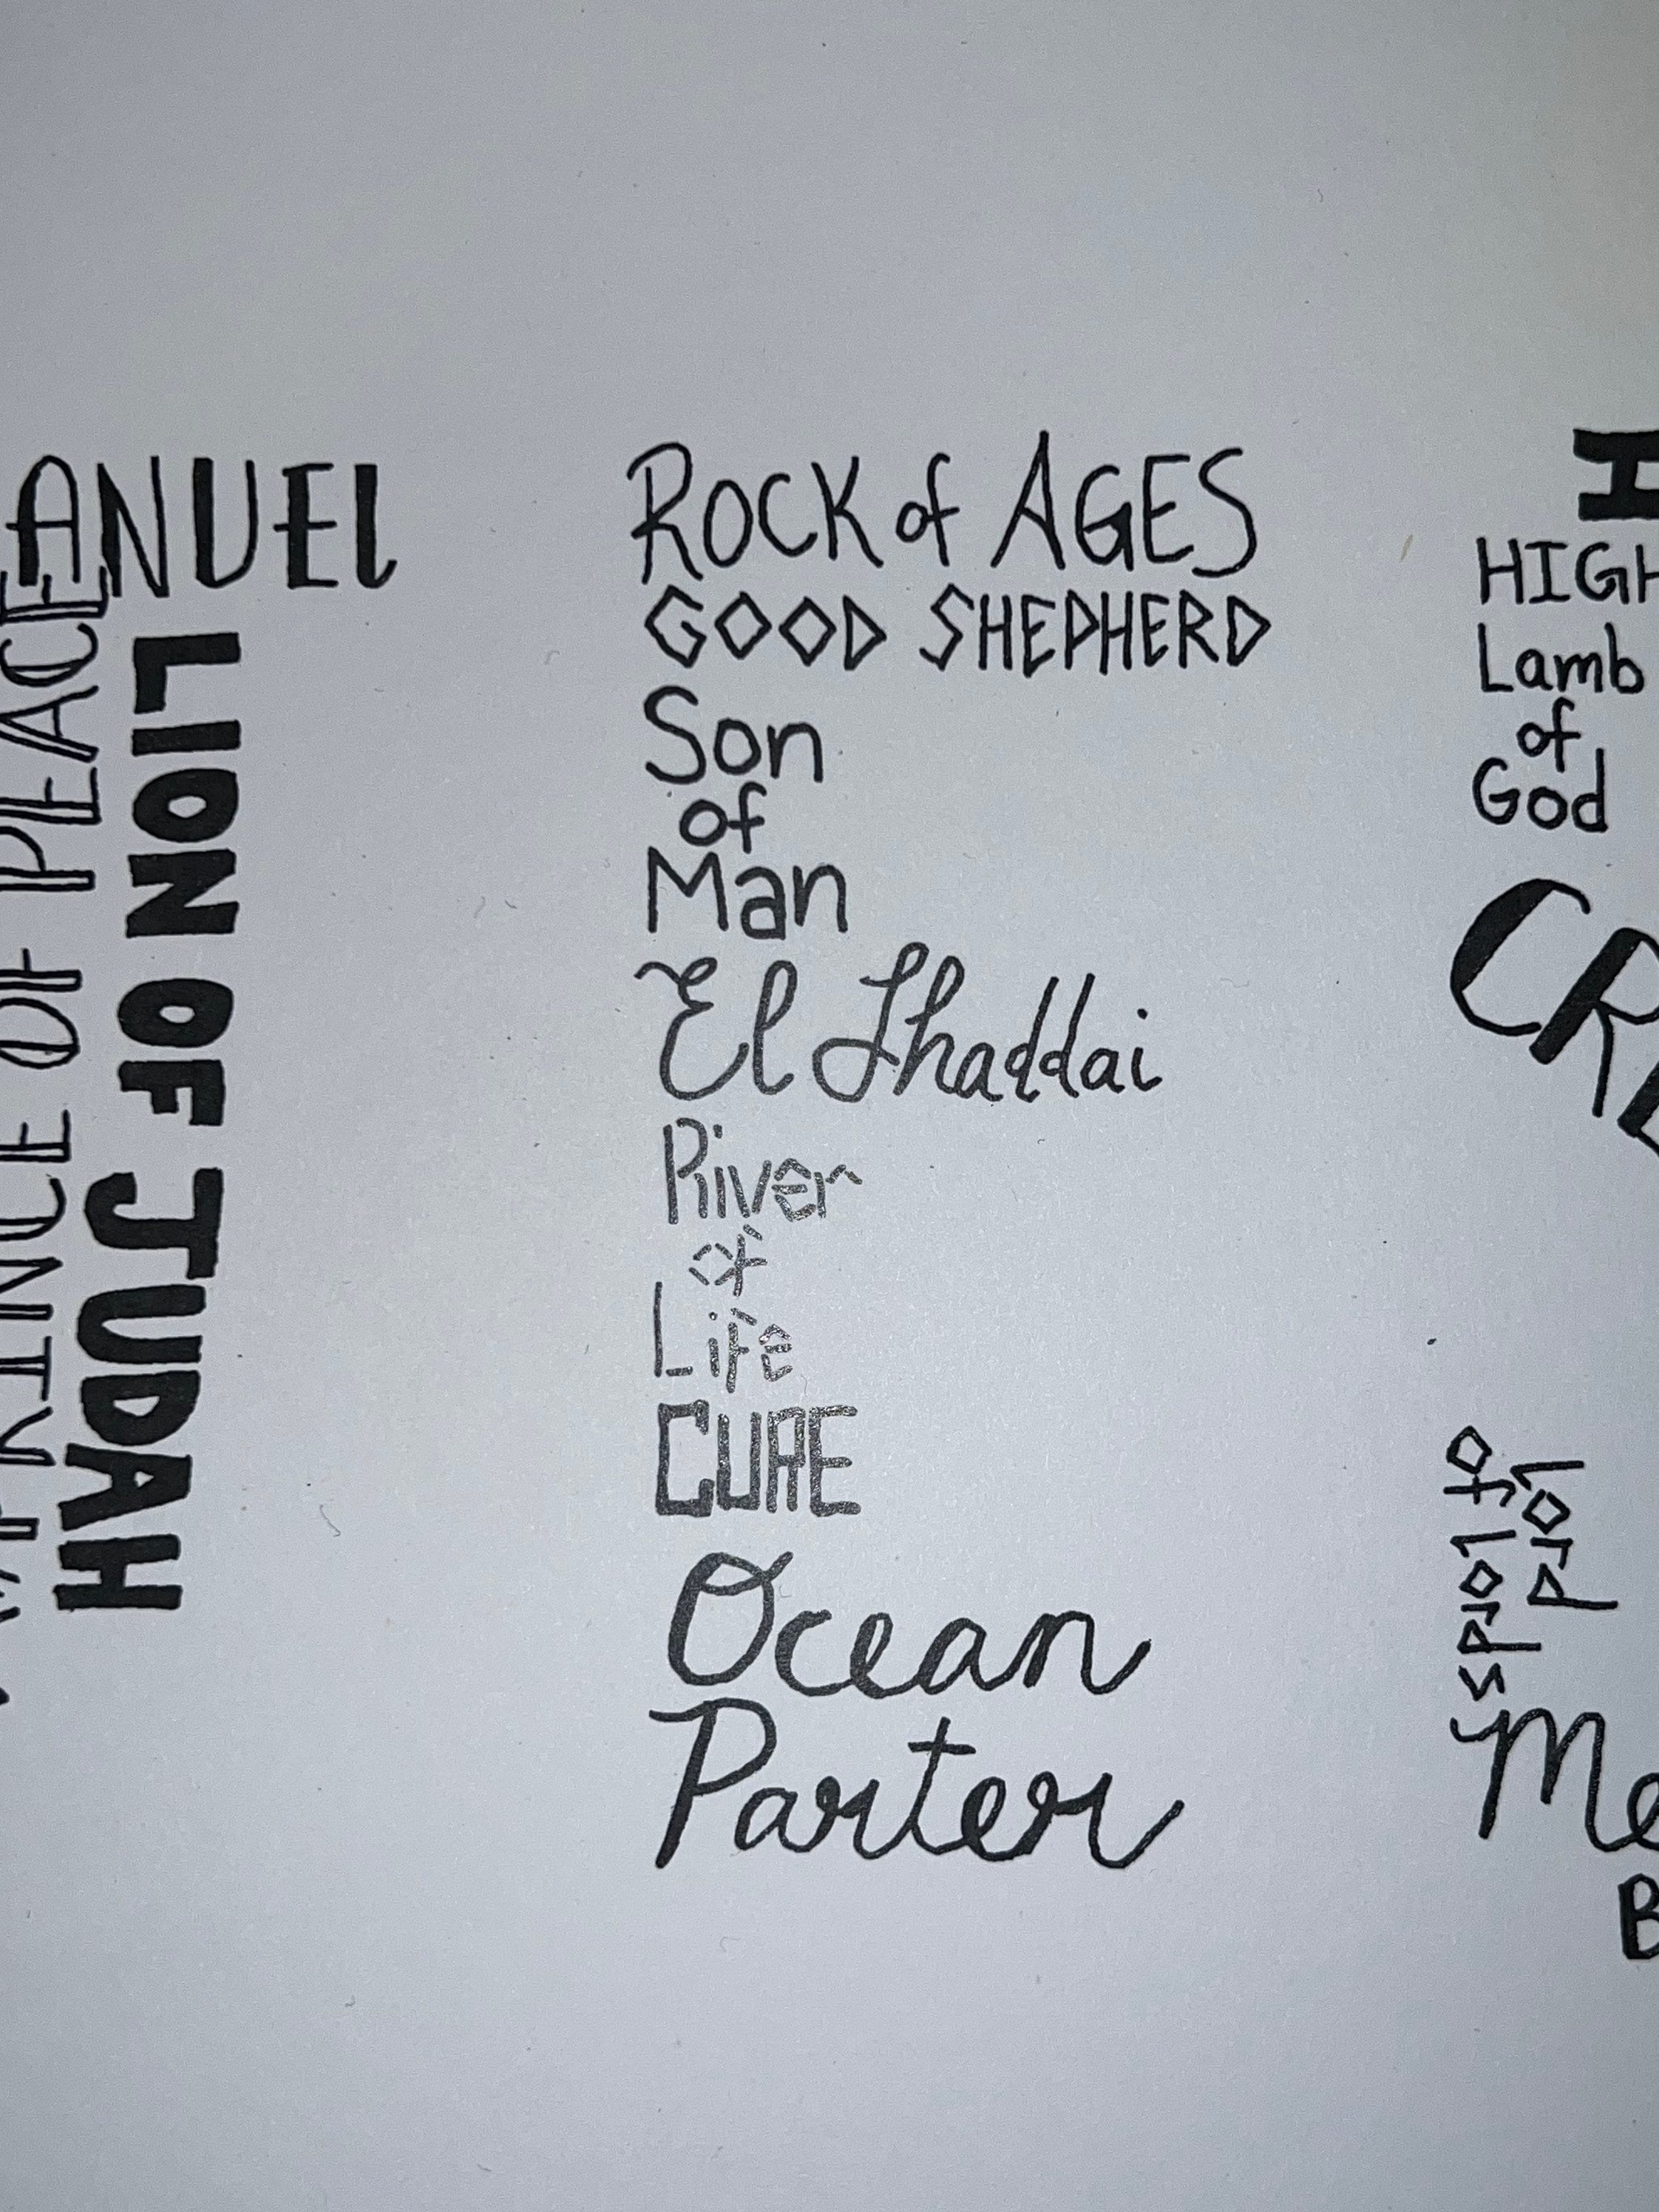 ANUEL
PRINCE OF PEACE
LION OF JUDAH
ROCK of AGES
GOOD SHEPHERD
Son
of
Man
El Shaddai
River
of
Life
CURE
Ocean
Parter
HIGH
Lamb
of
God
CRE
Lord
of Lords
Me
B